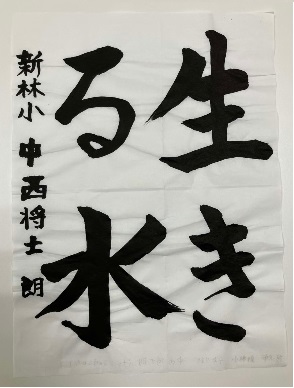 生き
る水
新林小 中西将士朗